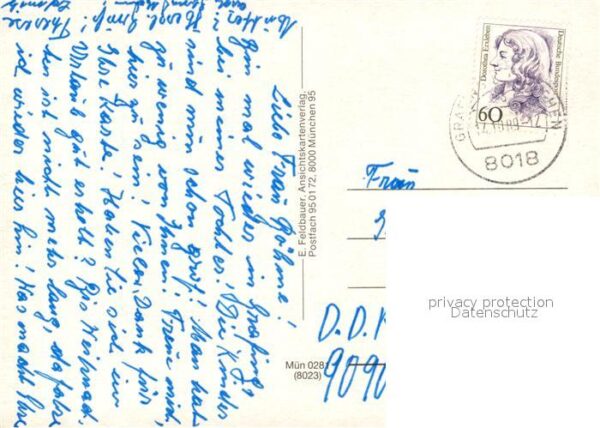 Liebe Frau Böhme!
Bin mal wieder in Grafing,
bei meiner Tochter! Die Kinder
sind nun schon groß! Man hat
zu wenig von Ihnen! Freue mich,
hier zu sein! Vielen Dank für
Ihre Karte! Haben Sie sich im
Urlaub gut erholt? Bis Weihnach-
ten ist nicht mehr lang, da fahre
ich wieder hier hin! Was macht Ihre
Mutter?
Herzl. Grüße!
Therese
E. Feldbauer, Ansichtskartenverlag,
Postfach 95 01 72, 8000 München 95
Mün 0281
(8023)
Dorothea Erxleben
Deutsche Bundespost
60
8018
Frau
D.D.
9090
privacy protection
Datenschutz